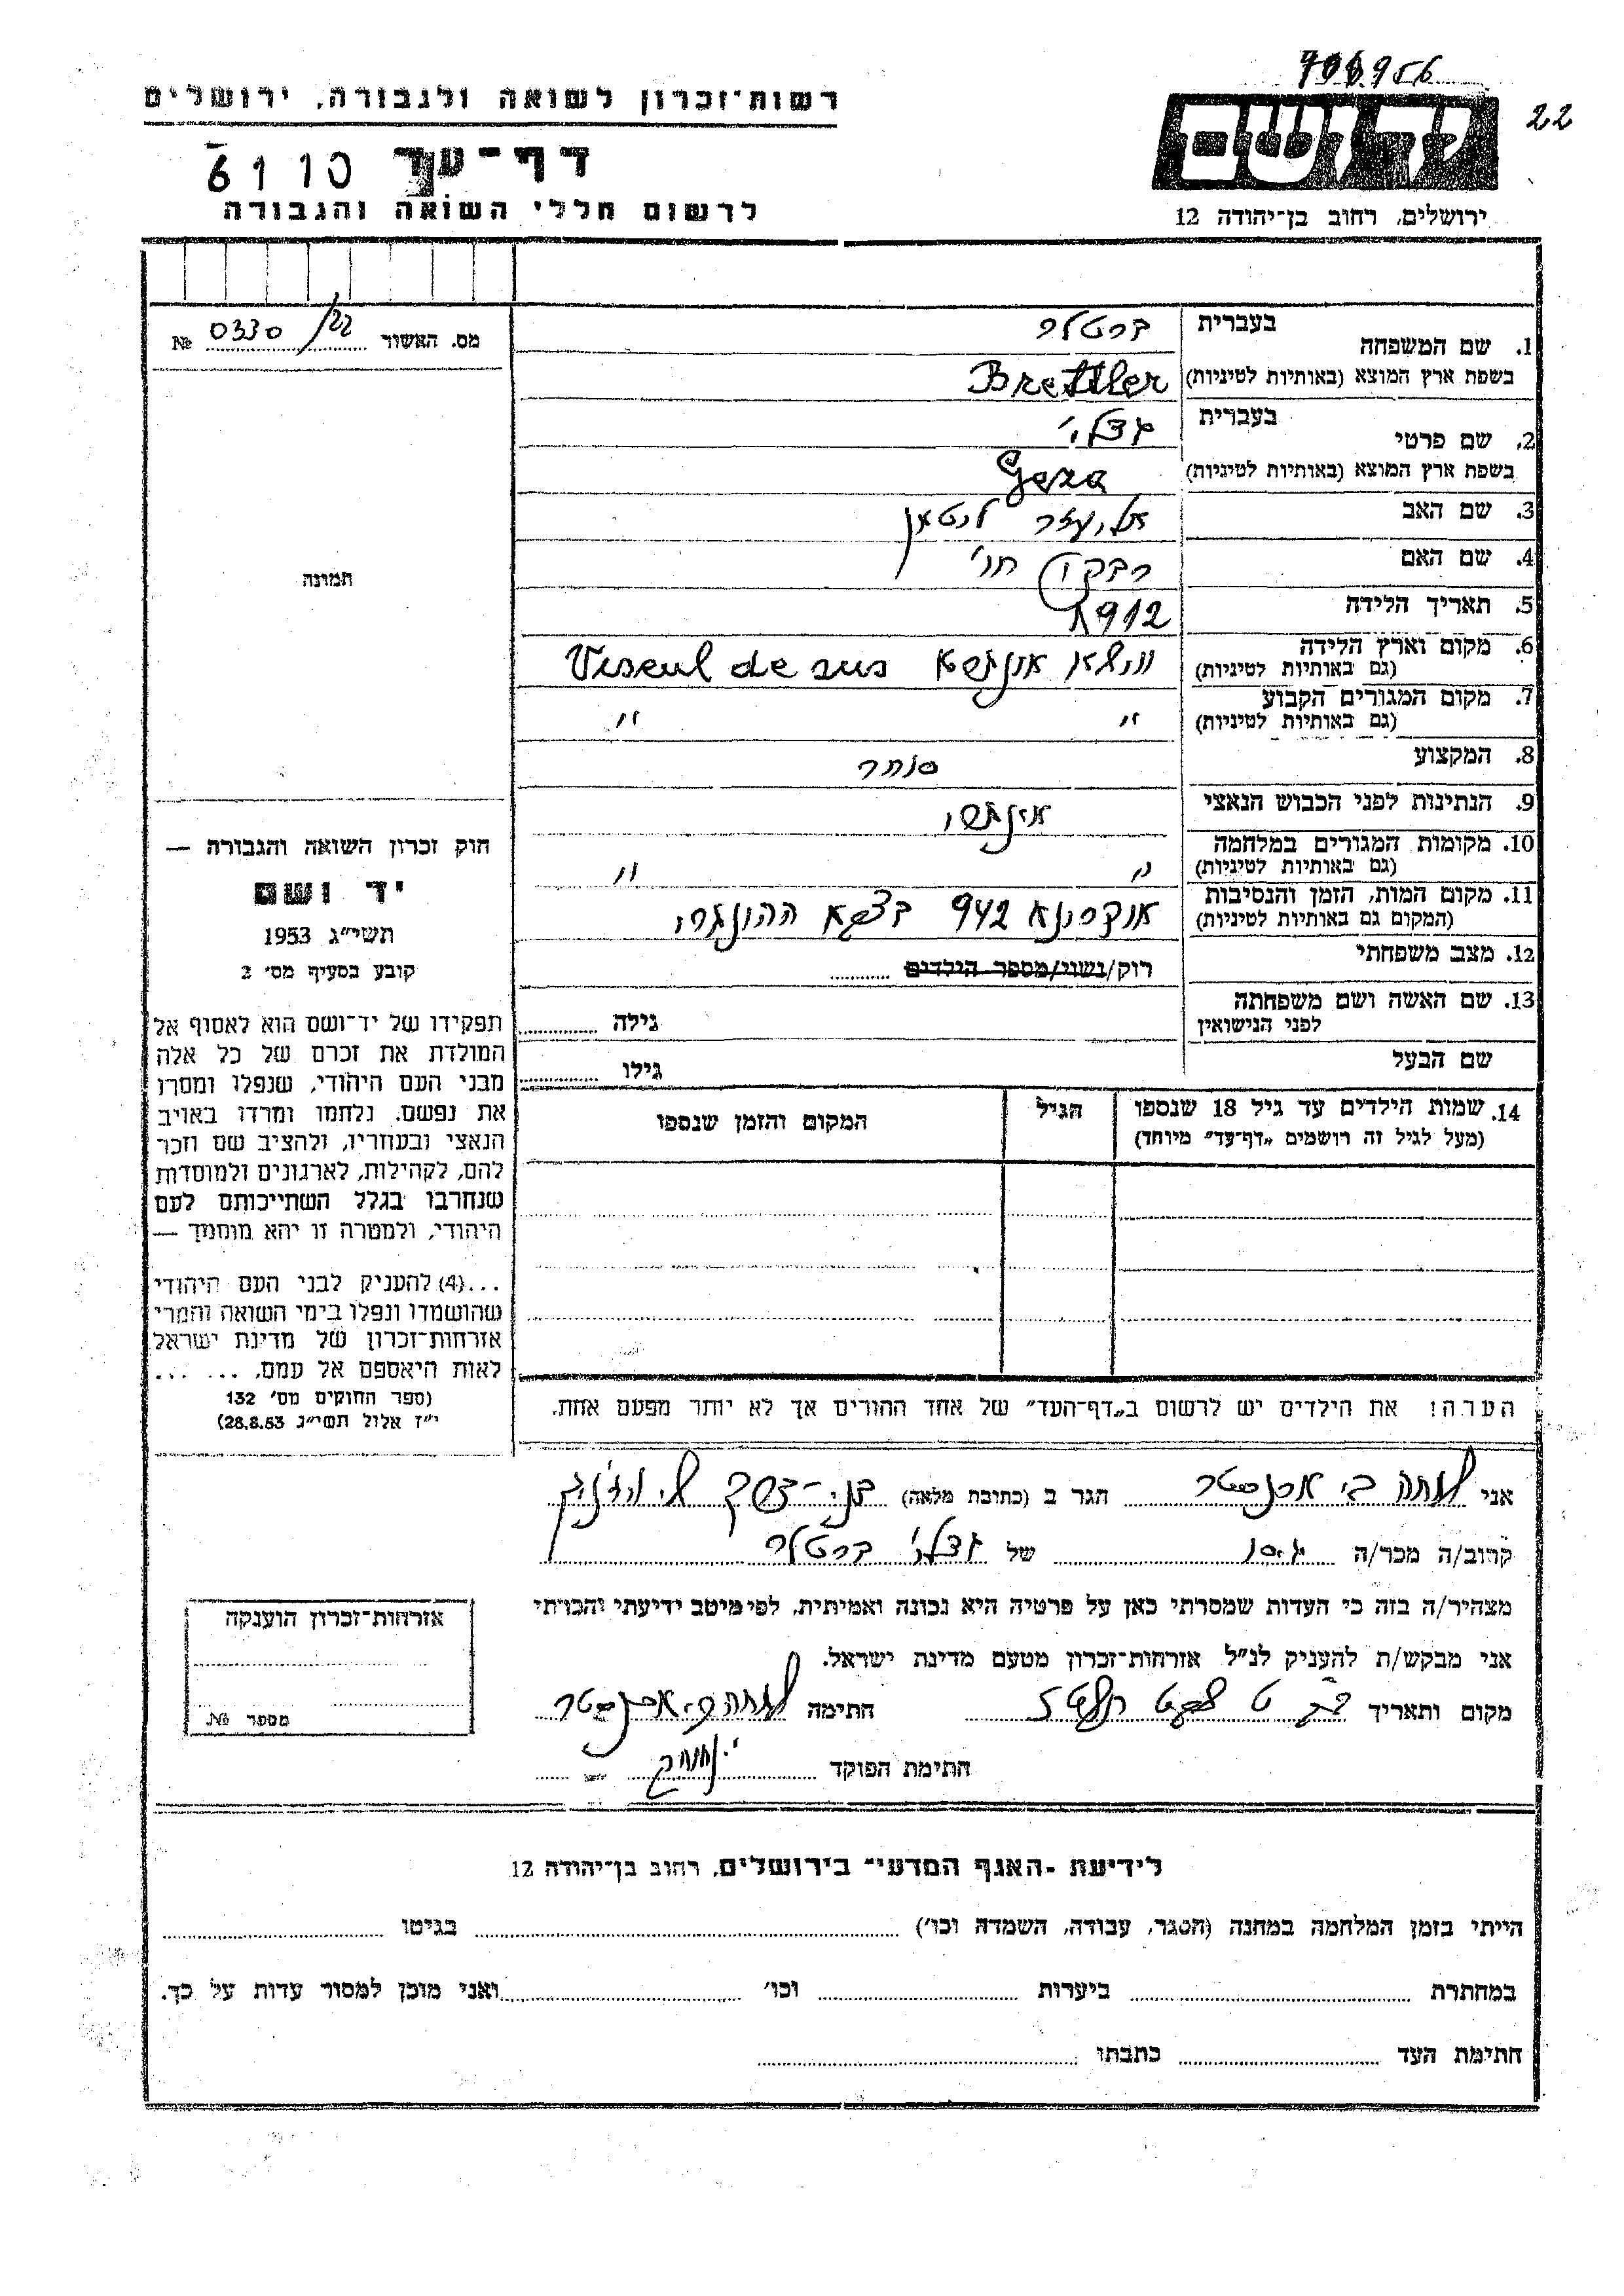 906956
22
רשות־זכרון לשואה ולגבורה, ירושלים
יד ושם
דף־עד
6110
לרשום חללי השואה והגבורה
ירושלים, רחוב בן־יהודה 12
מס. האשור 0330/22 №
1. שם המשפחה
בעברית ברטלר
בשפת ארץ המוצא (באותיות לטיניות) Brettler
2. שם פרטי
בעברית גצלי
בשפת ארץ המוצא (באותיות לטיניות) Geza
3. שם האב אליעזר
4. שם האם רבקה
5. תאריך הלידה 1912
6. מקום וארץ הלידה
(גם באותיות לטיניות) Viseul de sus
7. מקום המגורים הקבוע
(גם באותיות לטיניות) " "
8. המקצוע סוחר
9. הנתינות לפני הכבוש הנאצי
10. מקומות המגורים במלחמה
(גם באותיות לטיניות) " "
11. מקום המות, הזמן והנסיבות
(המקום גם באותיות לטיניות) אוקרינא 942 בצבא ההונגרי
12. מצב משפחתי רוק/נשוי/מספר הילדים
13. שם האשה ושם משפחתה
לפני הנישואין
גילה
שם הבעל
גילו
תמונה
חוק זכרון השואה והגבורה —
יד ושם
תשי״ג 1953
קובע בסעיף מס׳ 2
תפקידו של יד־ושם הוא לאסוף אל
המולדת את זכרם של כל אלה
מבני העם היהודי, שנפלו ומסרו
את נפשם. נלחמו ומרדו באויב
הנאצי ובעוזריו, ולהציב שם וזכר
להם, לקהילות, לארגונים ולמוסדות
שנחרבו בגלל השתייכותם לעם
היהודי, ולמטרה זו יהא מוסמך —
...(4) להעניק לבני העם היהודי
שהושמדו ונפלו בימי השואה והמרי
אזרחות־זכרון של מדינת ישראל
לאות היאספם אל עמם. ... ...
(ספר החוקים מס׳ 132
י״ז אלול תשי״ג 28.8.53)
14. שמות הילדים עד גיל 18 שנספו
(מעל לגיל זה רושמים „דף־עד״ מיוחד)
הגיל
המקום והזמן שנספו
הערה! את הילדים יש לרשום ב„דף־העד״ של אחד ההורים אך לא יותר מפעם אחת.
אני הגר ב (כתובת מלאה) בני־ברק
קרוב/ה מכר/ה גיסו של גצלי ברטלר
מצהיר/ה בזה כי העדות שמסרתי כאן על פרטיה היא נכונה ואמיתית, לפי מיטב ידיעתי והכרתי
אני מבקש/ת להעניק לנ״ל אזרחות־זכרון מטעם מדינת ישראל.
מקום ותאריך חתימה
חתימת הפוקד
אזרחות־זכרון הוענקה
מספר №.
לידיעת ־האגף המדעי־ בירושלים, רחוב בן־יהודה 12
הייתי בזמן המלחמה במחנה (הסגר, עבודה, השמדה וכו׳) בגיטו
במחתרת ביערות וכו׳ ואני מוכן למסור עדות על כך.
חתימת העד כתבתו